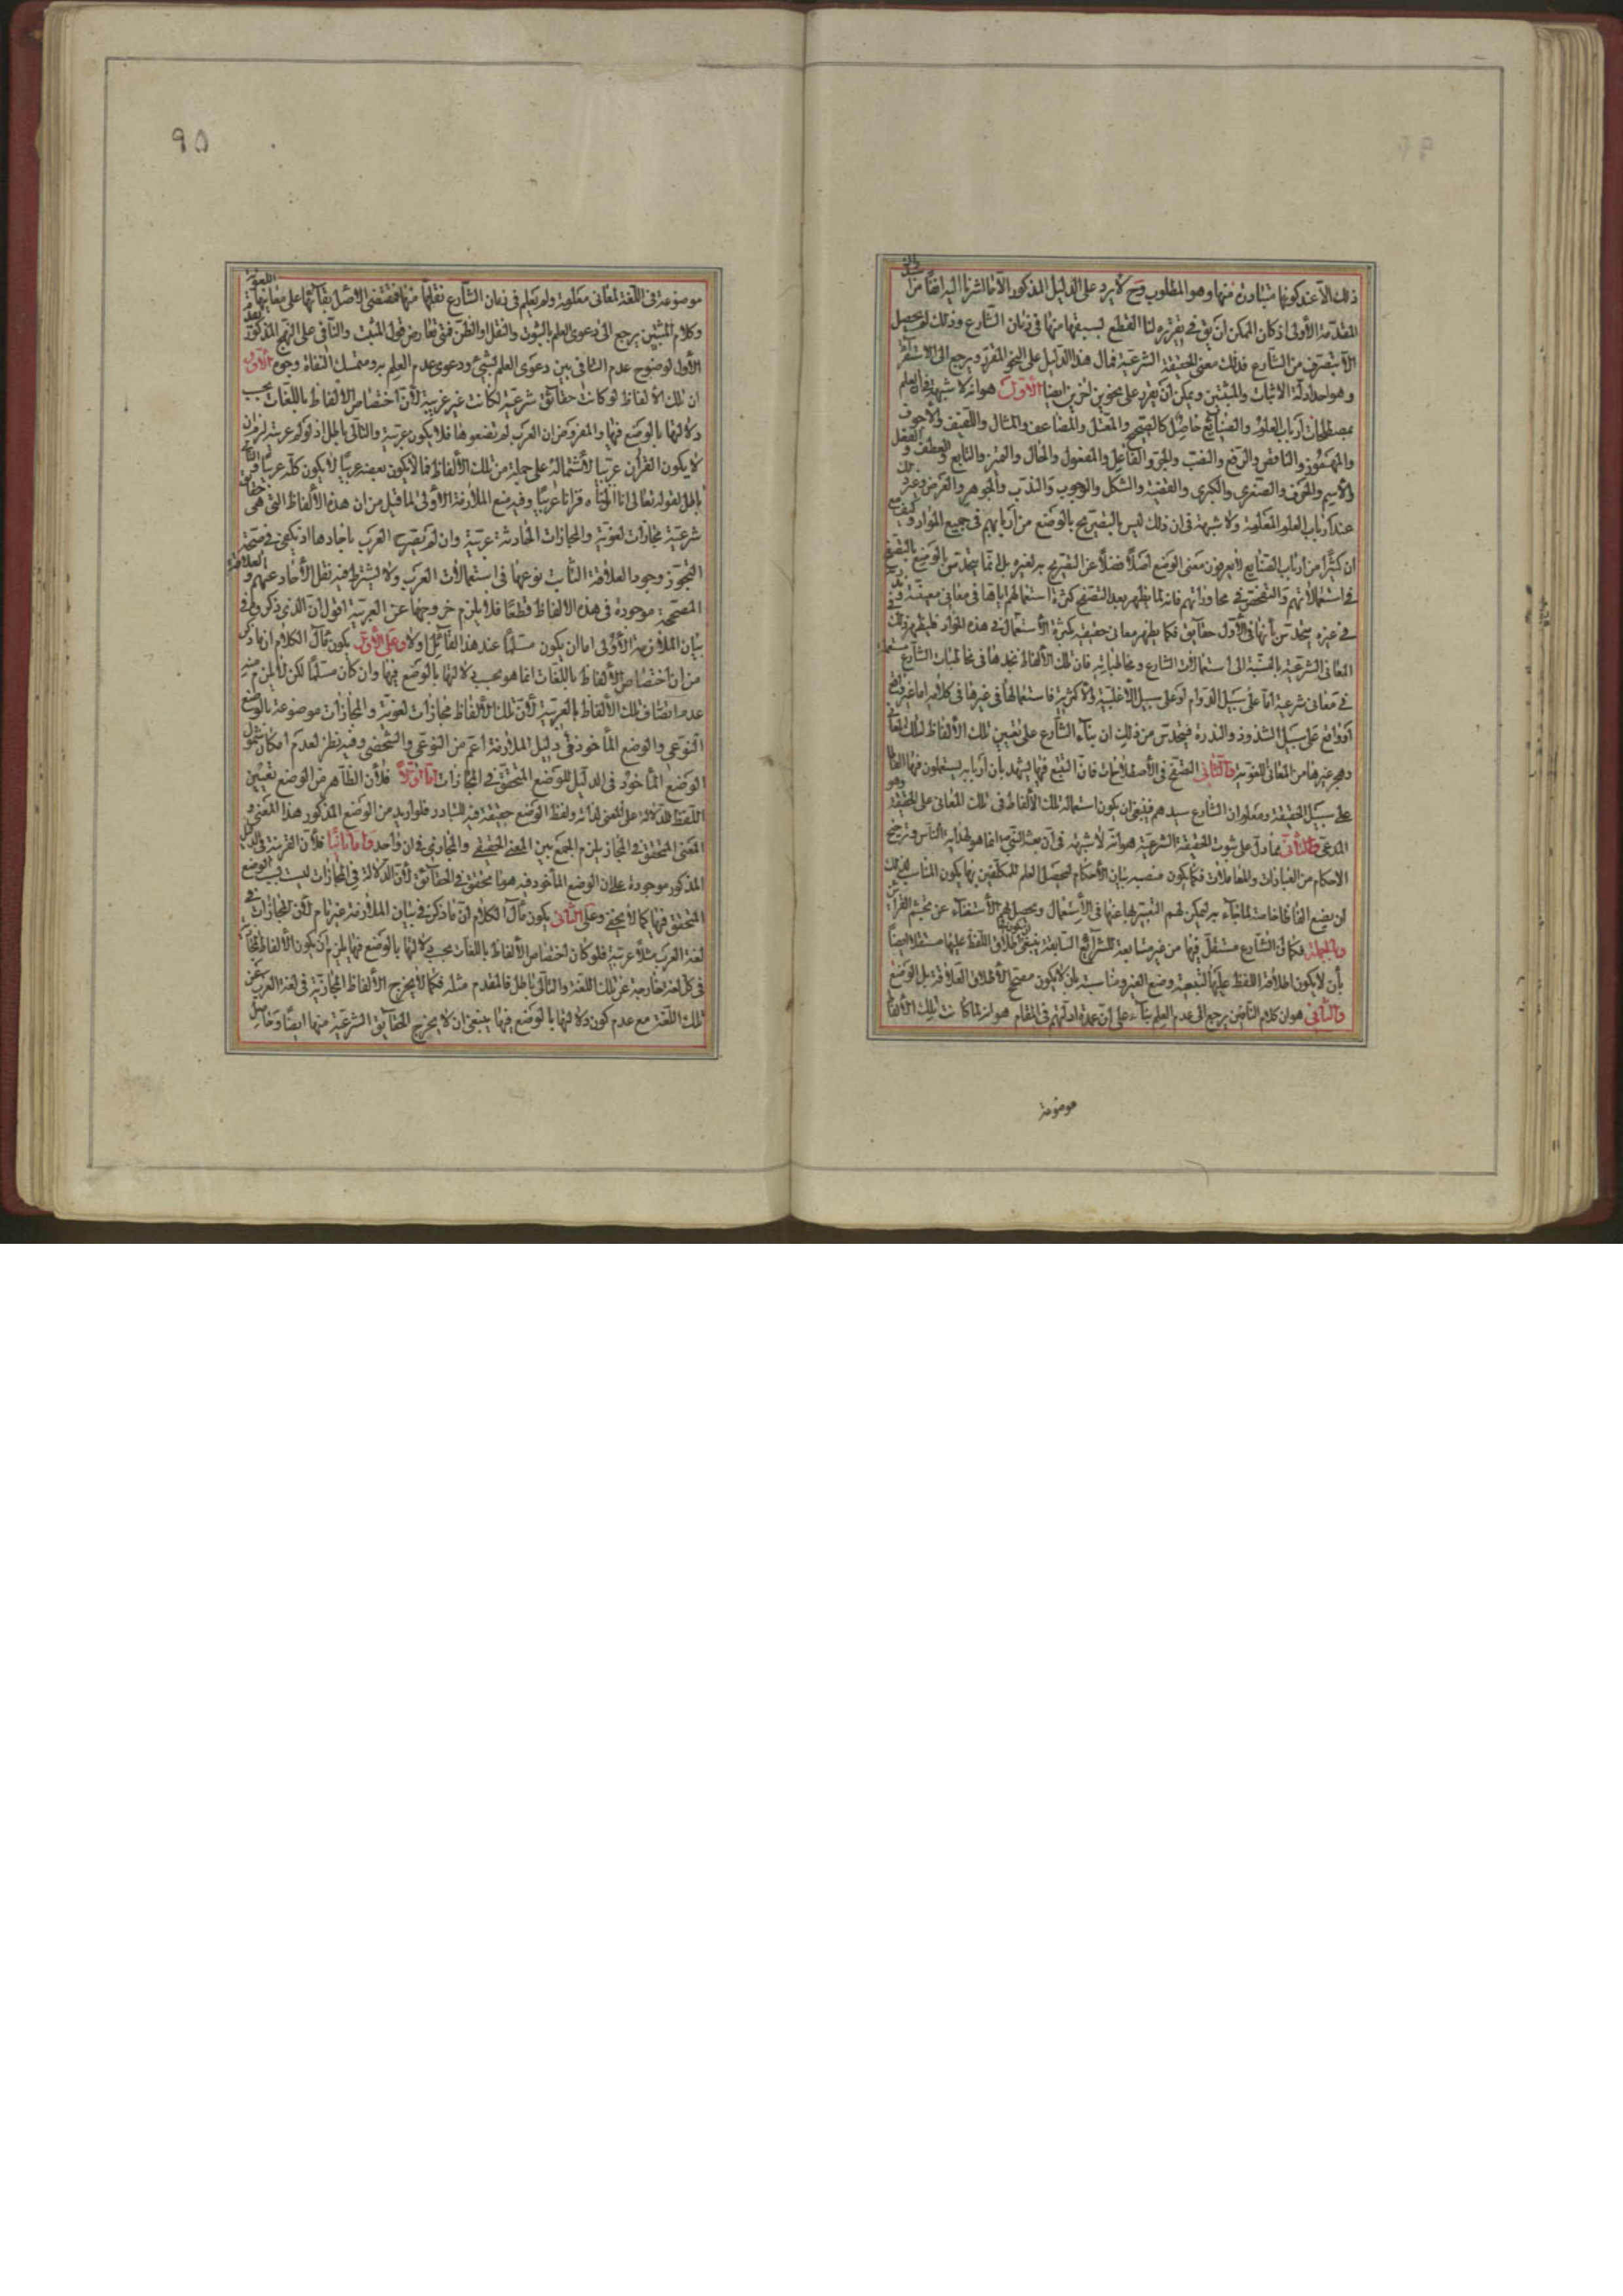 ذلك الا عند كونها متبادرة منها وهو المطلوب وح لا يرد على الدليل المذكور الا ما اشرنا اليه ايضًا من
المقدمة الأولى اذ كان الممكن ان يق في تقريره لنا القطع بسبقها منها في زمان الشارع وذلك لم يحصل
الا بتصرف من الشارع فذلك معنى الحقيقة الشرعية فمال هذا الدليل على النحو المقرر ويرجع الى الاستقراء
وهو احد ادلة الاثبات والمثبتين ويمكن ان يقرر على نحوين اخرين ايضا الأول هو انه لا شبهة في ان العلم
بمصطلحات ارباب العلوم والصنايع حاصل كالصحيح والمعتل والمضاعف والمثال واللفيف والاجوف
والمهموز والناقص والرفع والنصب والجر والفاعل والمفعول والحال والتميز والتابع والعطف والفعل
والاسم والحرف والصغرى والكبرى والقضية والشكل والوجوب والندب والجوهر والعرض وغير ذلك
عند ارباب العلوم المعلومة ولا شبهة في ان ذلك ليس بالتصريح بالوضع من اربابهم في جميع الموارد كيف مع
ان كثيرًا من ارباب الصنايع لا يعرفون معنى الوضع اصلًا فضلًا عن التصريح به لغيره بل انما يتحدس بالوضع بالتصفح
في استعمالاتهم والتفحص في محاوراتهم فانه لما يظهر بعد التصفح كثرة استعمالهم اياها في معاني معينة
في غيره يتحدس بأنها في الأول حقايق فكما يظهر معاني حقيقية بكثرة الاستعمال في هذه الموارد فليظهر كذلك
المعاني الشرعية بالنسبة الى استعمالات الشارع ومخاطباته فان تلك الألفاظ نجدها في مخاطبات الشارع مستعملة
في معاني شرعية اما على سبيل الدوام او على سبيل الاغلبية والاكثرية فاستعمالها في غيرها في كلامه اما غير واقع
او واقع على سبيل الشذوذ والندرة فيتحدس من ذلك ان بناء الشارع على تعيين تلك الألفاظ لتلك المعاني
وهجر غيرها من المعاني اللغوية والثاني التصفح في الأصطلاحات فان التتبع فيها يشهد بأن اربابه يستعملون فيها الفاظا
على سبيل الحقيقة ومعلوم ان الشارع سيدهم فينبغي ان يكون استعماله تلك الألفاظ في تلك المعاني على الحقيقة وهو
المدعى والثالث مما دل على ثبوت الحقيقة الشرعية هو انه لا شبهة في ان بعثة النبي انما هو لهداية الناس وترويج
الاحكام من العبادات والمعاملات فكما يكون منصبه بيان الأحكام لتحصل العلم للمكلفين بها يكون المناسب لذلك
ان يضع الفاظا خاصة لما جاء به ليمكن لهم التعبير بها عنها في الأستعمال ويحصل لهم الأستغناء عن تجشم القرائن
وبالجملة فكما ان الشارع مستقل فيها من غير متابعة للشرايع السابقة ينبغي ان يكون اطلاق اللفظ عليها مستقلا ايضًا
بأن لا يكون اطلاقه اللفظ عليها لتبعية وضع الغير ومناسبته بأن لا يكون مصحح الأطلاق العلاقة بل الوضع
والثاني هو ان كلام النافين يرجع الى عدم العلم بناء على ان عمدة ادلتهم في المقام هو انه لما كانت تلك الألفاظ
موضوعة
٩٥
موضوعة في اللغة لمعاني معلومة ولم يعلم في زمان الشارع نقلها منها فمقتضى الأصل بقائها على معانيها اللغوية
وكلام المثبتين يرجع الى دعوى العلم بالثبوت والنقل او الظن فمتى تعارض قول المثبت والنافي على النهج المذكور يقدم
الأول لوضوح عدم التنافي بين دعوى العلم بشئ ودعوى عدم العلم به ومتمسك النفاة وجوه الأول
ان تلك الألفاظ لو كانت حقائق شرعية لكانت غير عربية لأن اختصاص الألفاظ باللغات بحسب
دلالتها بالوضع فيها والمفروض ان العرب لم يضعوها فلا يكون عربية والتالي باطل اذ لو لم عربية لزم ان
لا يكون القرآن عربيا لأشتماله على جملة من تلك الألفاظ فما لا يكون بعضه عربيًا لا يكون كله عربيًا والتالي
باطل لقوله تعالى انا انزلناه قرانا عربيًا وفيه منع الملازمة الأولى لما قيل من ان هذه الألفاظ التي هي حقايق
شرعية مجازات لغوية والمجازات الحادثة عربية وان لم يصرح العرب باحادها اذ يكفي في صحة
التجوز وجود العلاقة الثابت نوعها في استعمالات العرب ولا يشترط فيه نقل الأحاد عنهم والعلاقة
المصححة موجودة في هذه الالفاظ قطعًا فلا يلزم خروجها عن العربية اقول ان الذي ذكروه في
بيان الملازمة الأولى اما ان يكون مسلمًا عند هذا القائل اولا وعلى الأول يكون مآل الكلام ان ما ذكر
من ان اختصاص الألفاظ باللغات انما هو بحسب دلالتها بالوضع فيها وان كان مسلمًا لكن لا يلزم منه
عدم اتصاف تلك الألفاظ بالعربية لأن تلك الألفاظ مجازات لغوية والمجازات موضوعة بالوضع
النوعي والوضع المأخوذ في دليل الملازمة اعم من النوعي والشخصي وفيه نظر لعدم امكان شمول
الوضع المأخوذ في الدليل للوضع المتحقق في المجازات اما اولًا فلأن الظاهر من الوضع تعيين
اللفظ للدلالة على المعنى لذاته ولفظ الوضع حقيقة فيه للتبادر فلو اريد من الوضع المذكور هذا المعنى و
المعنى المتحقق في المجاز يلزم الجمع بين المعنى الحقيقي والمجازي في ان واحد واما ثانيًا فلأن القرينة في الدليل
المذكور موجودة على ان الوضع المأخوذ فيه هو ما يتحقق في الحقائق لأن الدلالة في المجازات ليست بسبب الوضع
المتحقق فيها كما لا يخفى وعلى الثاني يكون مآل الكلام ان ما ذكر في بيان الملازمة غير تام لأن المجازات في
لغة العرب مثلًا عربية فلو كان اختصاص الألفاظ باللغات بحسب دلالتها بالوضع فيها يلزم ان يكون الألفاظ المجازية
في كل لغة خارجة عن تلك اللغة والتالي باطل فالمقدم مثله فكما لا يخرج الألفاظ المجازية في لغة العرب عن
تلك اللغة مع عدم كون دلالتها بالوضع فيها ينبغي ان لا يخرج الحقايق الشرعية منها ايضًا وحاصل